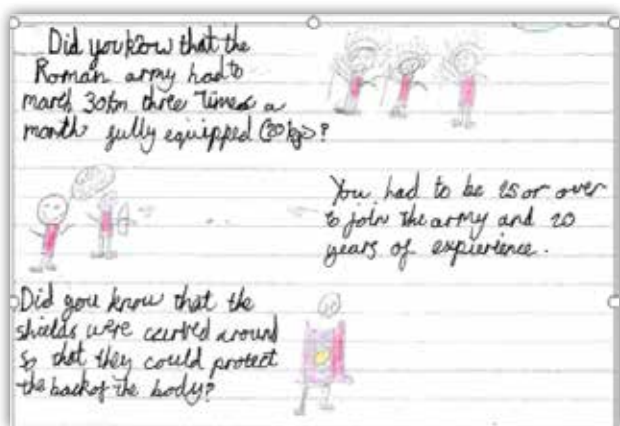 Did you know that the
Roman army had to
march 30km three Times a
month fully equipped (20 kgs)?
You had to be 25 or over
to join the army and 20
years of expierience.
Did you know that the
shields were curved around
so that they could protect
the back of the body?